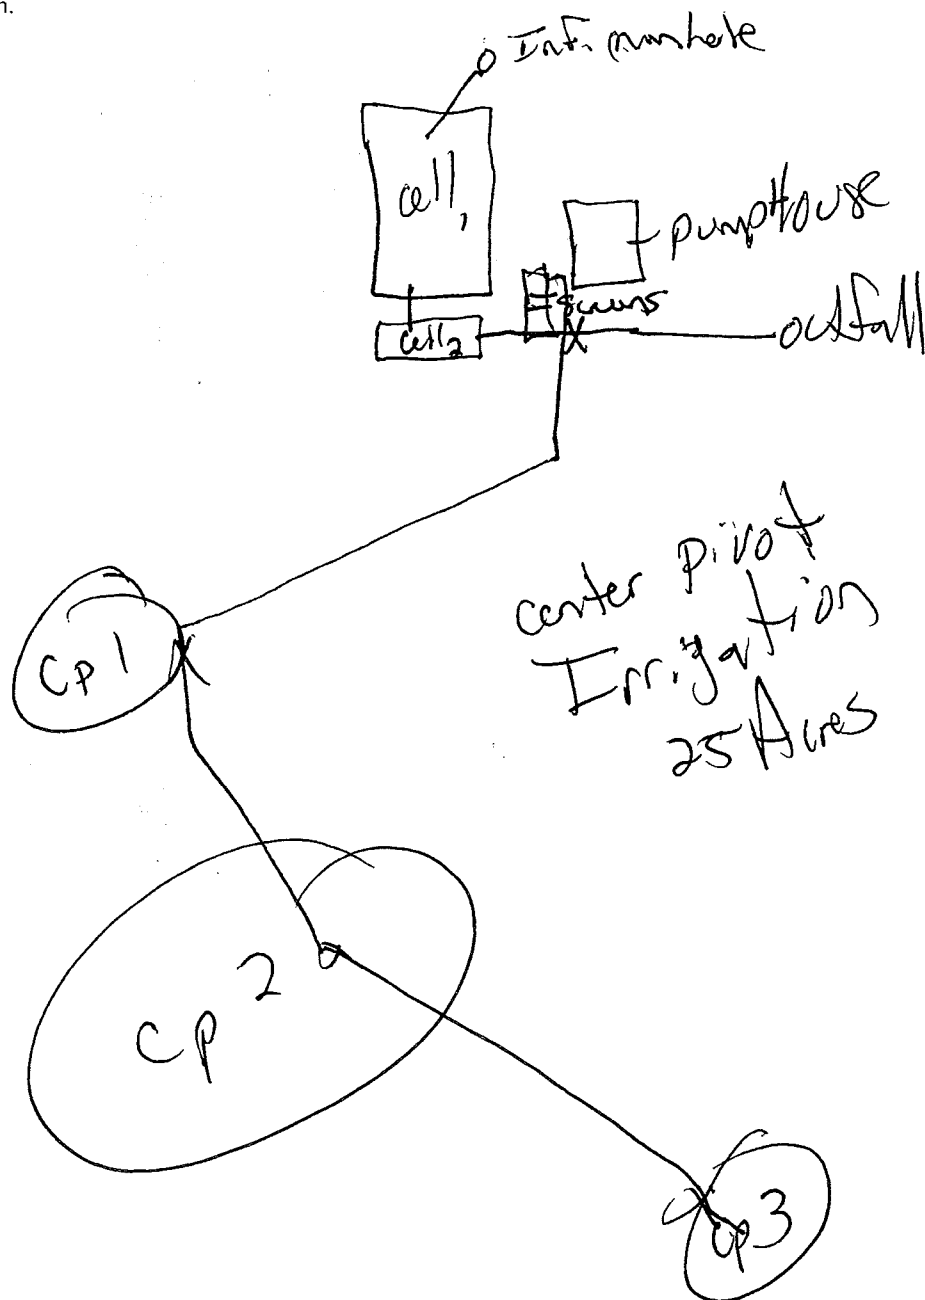 n.
Inf. manhole
cell 1
pumpHouse
screens
cell 2
outfall
center pivot
Irrigation
25 Acres
Cp 1
Cp 2
Cp 3